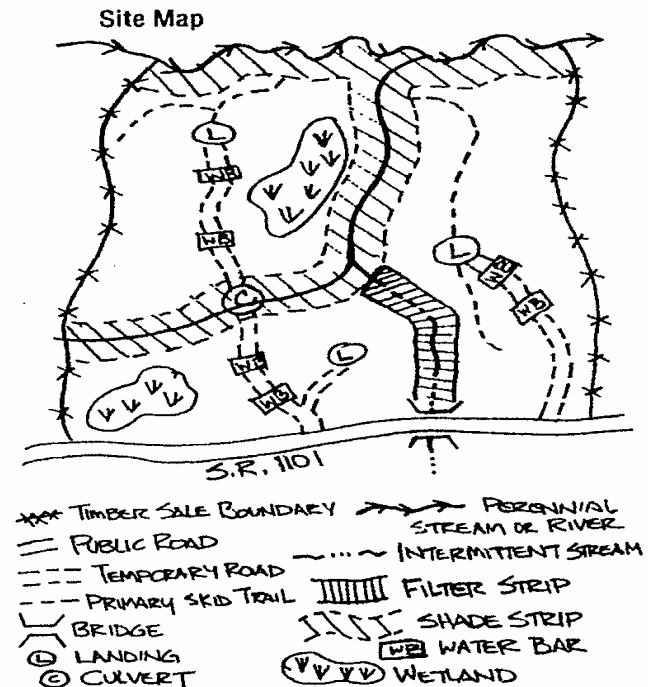 Site Map
L
WB
WB
C
L
WB
WB
WB
L
WB
S.R. 1101
TIMBER SALE BOUNDARY
PUBLIC ROAD
TEMPORARY ROAD
PRIMARY SKID TRAIL
BRIDGE
L LANDING
C CULVERT
PERENNIAL
STREAM OR RIVER
INTERMITTENT STREAM
FILTER STRIP
SHADE STRIP
WB WATER BAR
WETLAND